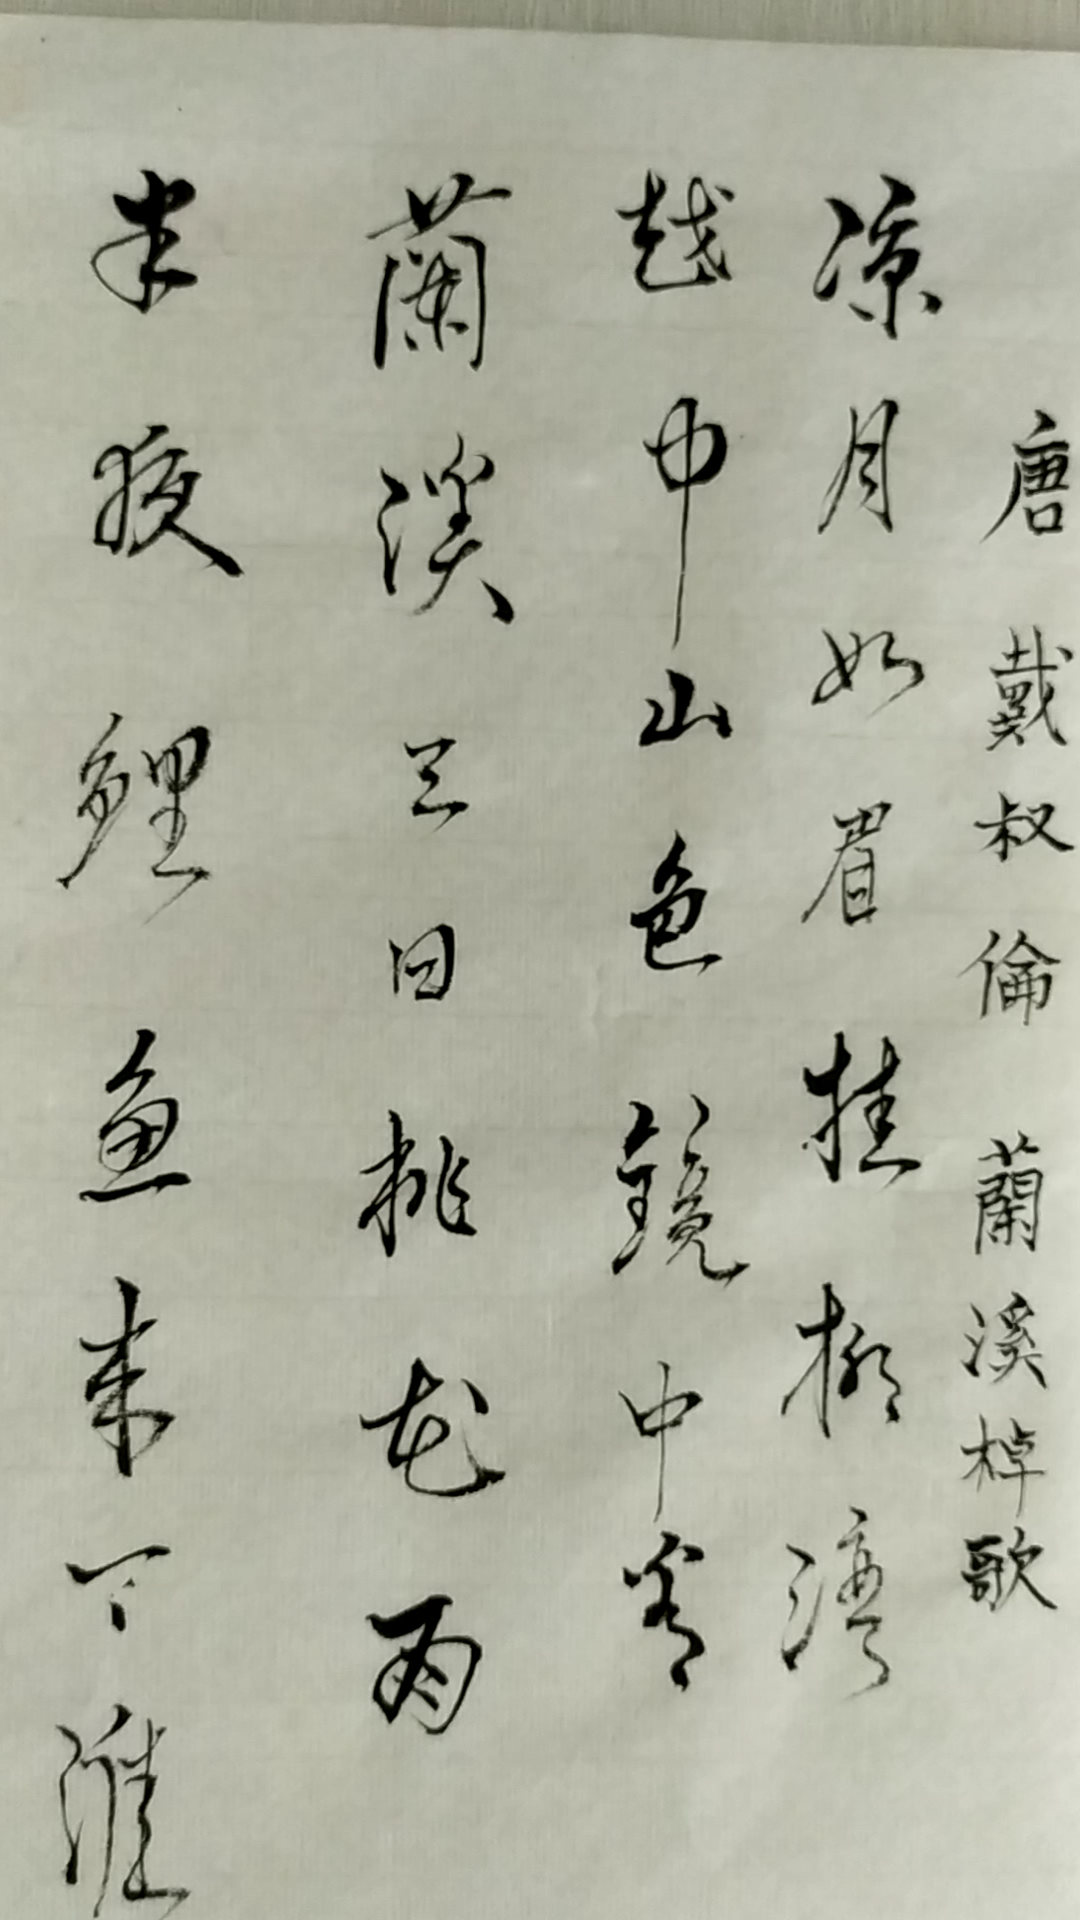 唐 戴叔倫 蘭溪棹歌
涼月如眉挂柳灣
越中山色鏡中看
蘭溪三日桃花雨
半夜鯉魚來上灘